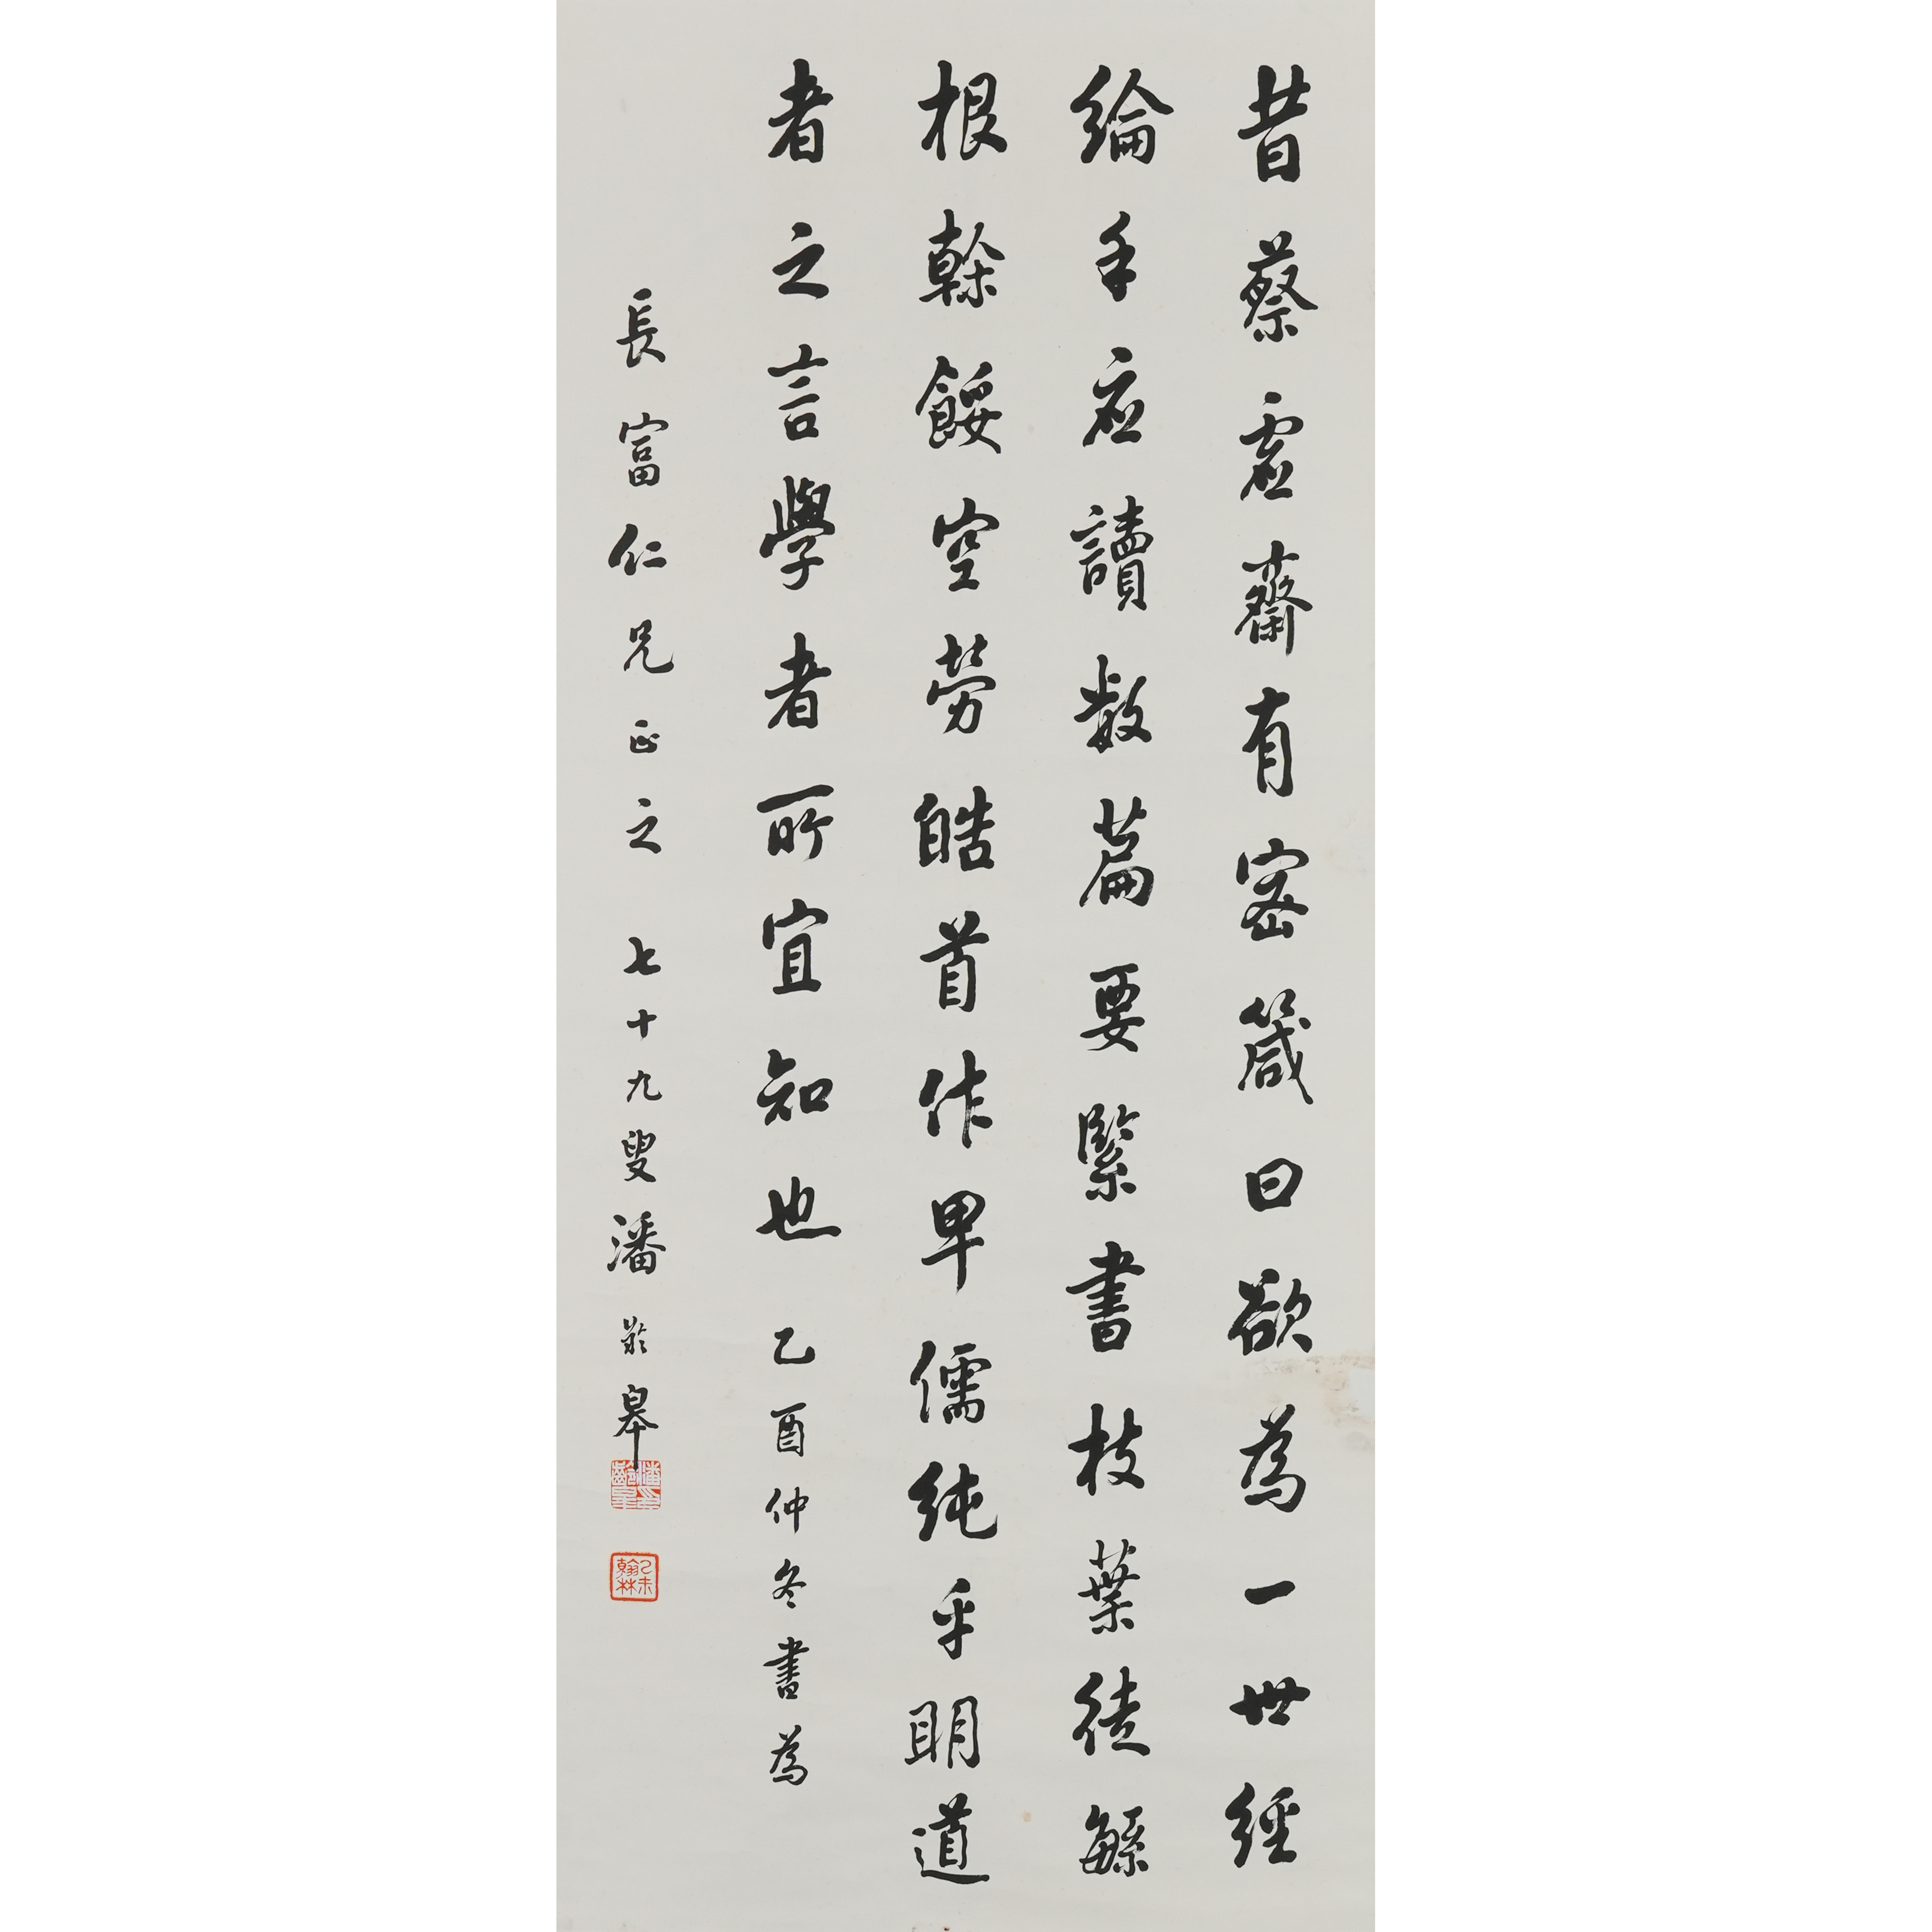 昔蔡虛齋有密箴曰欲為一世經
綸手應讀數篇要緊書枝葉徒繇
根榦餒空勞皓首作卑儒純乎明道
者之言學者所宜知也 乙酉仲冬書為
長富仁兄正之 七十九叟潘齡皋
潘齡皋
乙未翰林